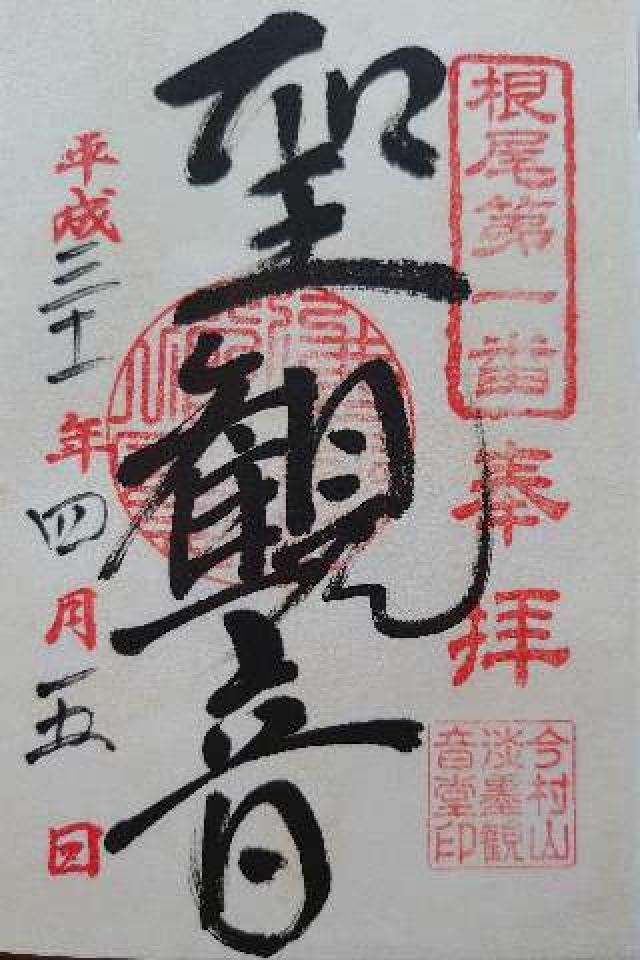 根尾第一番
奉拝
今村山
淡墨観
音堂印
聖観音
平成三十一年四月五日